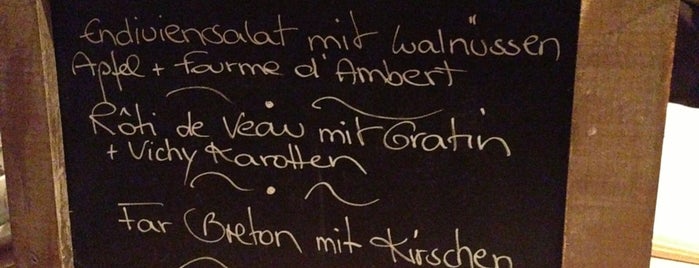 Endiviensalat mit Walnüssen
Apfel + Fourme d'Ambert
Rôti de Veau mit Gratin
+ Vichy Karotten
Far Breton mit Kirschen